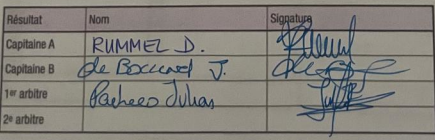 Résultat Nom Signature
Capitaine A RUMMEL D.
Capitaine B de J.
1er arbitre Pacheco Julian
2e arbitre